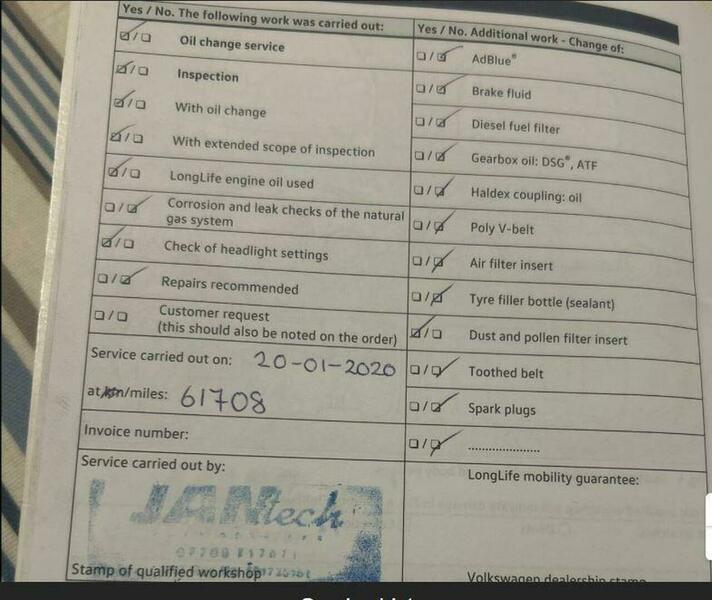 Yes / No. The following work was carried out:
Oil change service
Inspection
With oil change
With extended scope of inspection
LongLife engine oil used
Corrosion and leak checks of the natural
gas system
Check of headlight settings
Repairs recommended
Customer request
(this should also be noted on the order)
Service carried out on: 20-01-2020
at/km/miles: 61708
Invoice number:
Service carried out by:
JANtech
Stamp of qualified workshop
Yes / No. Additional work - Change of:
AdBlue®
Brake fluid
Diesel fuel filter
Gearbox oil: DSG®, ATF
Haldex coupling: oil
Poly V-belt
Air filter insert
Tyre filler bottle (sealant)
Dust and pollen filter insert
Toothed belt
Spark plugs
.....................
LongLife mobility guarantee:
Volkswagen dealership stamp